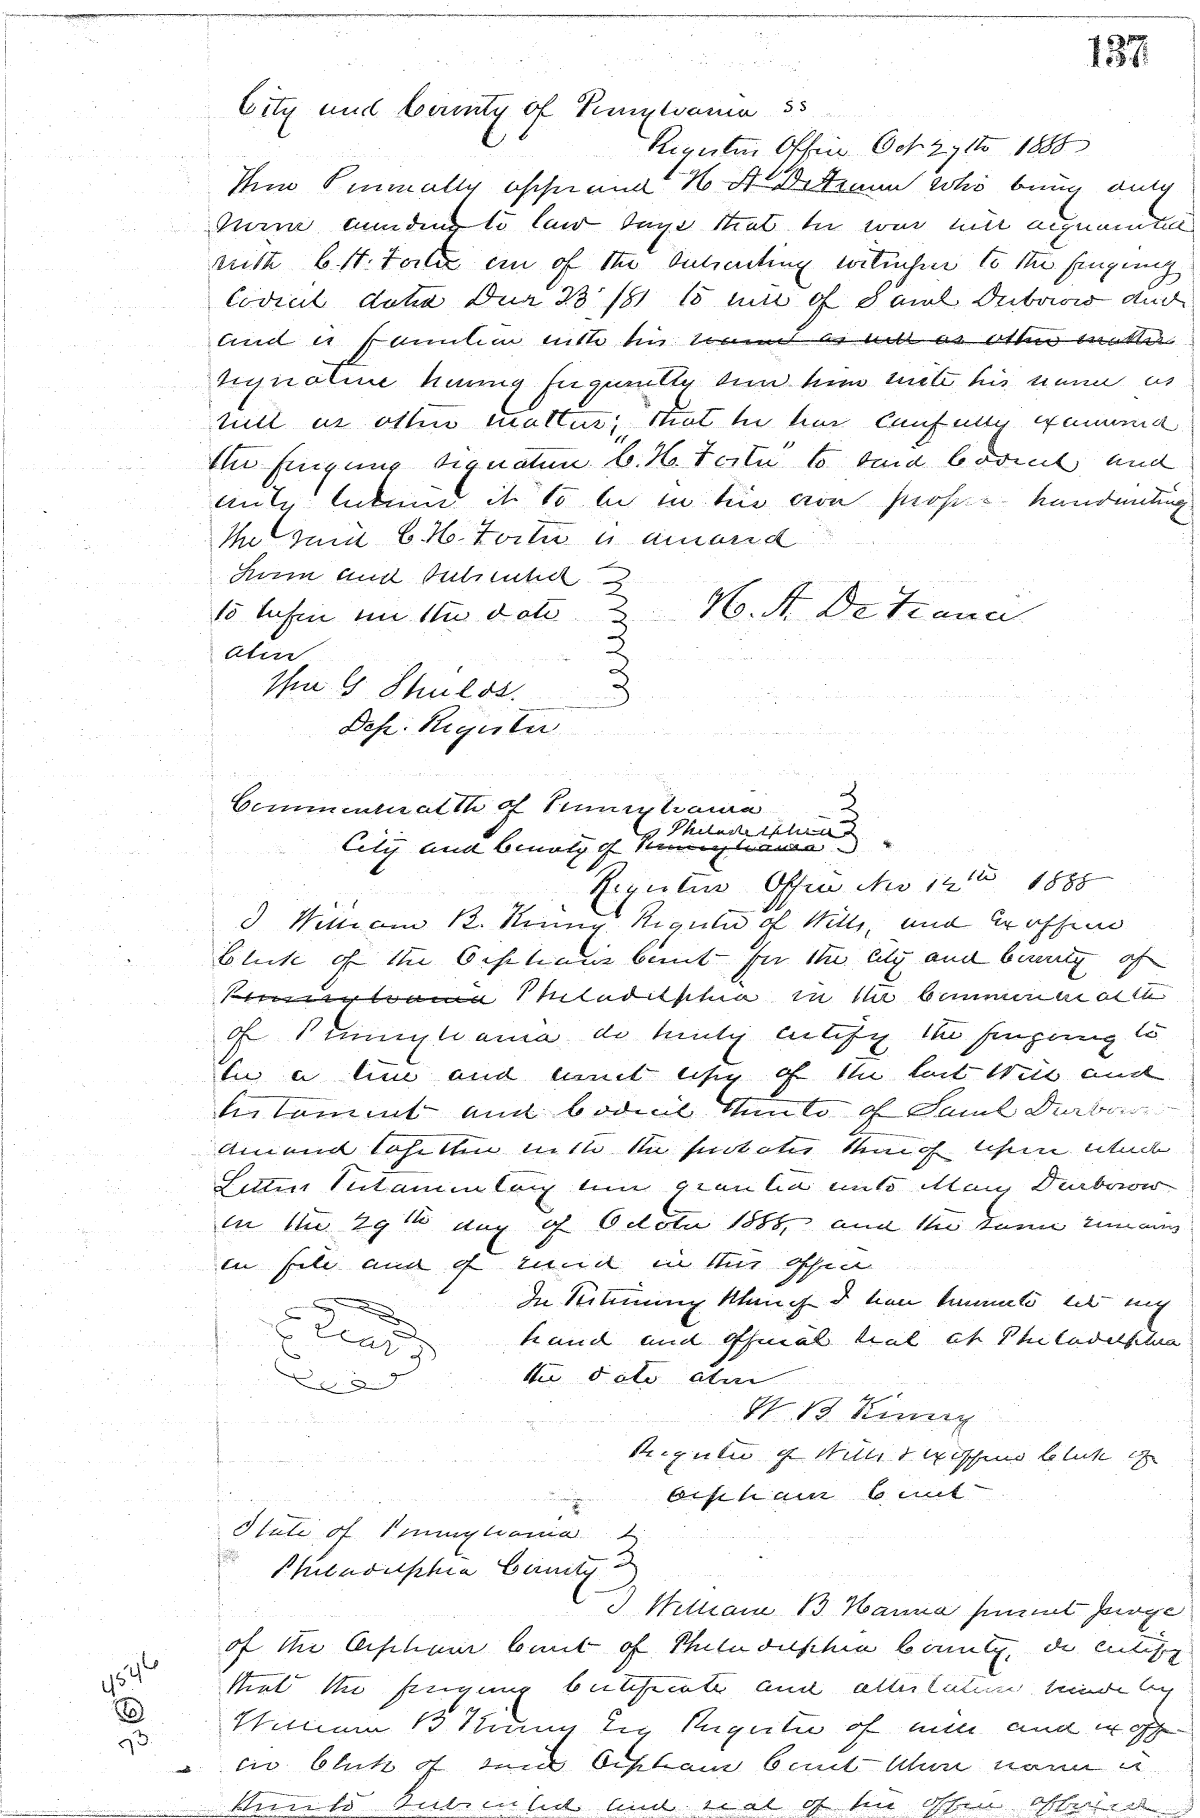 137
City and County of Pennsylvania ss
Register Office Oct 29th 1888
Then Personally appeared H A DeFrance who being duly
sworn according to law says that he was well acquainted
with C. H. Foster one of the subscribing witnesses to the foregoing
Codicil dated 23 /81 to will of Saml Durborow decd
and is familiar with his name as well as other matter
signature having frequently seen him write his name as
well as other matter; that he has carefully examined
the foregoing signature "C. H. Foster" to said Codicil and
verily believes it to be in his own proper handwriting
The said C. H. Foster is deceased
Sworn and subscribed
to before me the date H. A. DeFrance
above
Wm G Shields.
Dep. Register
Commonwealth of Pennsylvania
Philadelphia
City and County of Pennsylvania
Register Office Nov 12th 1888
I William B. Kinney Register of Wills, and Ex officio
Clerk of the Orphans Court for the City and County of
Pennsylvania Philadelphia in the Commonwealth
of Pennsylvania do hereby certify the foregoing to
be a true and correct copy of the last Will and
testament and Codicil thereto of Saml Durborow
deceased together with the probates thereof upon which
Letters Testamentary were granted unto Mary Durborow
on the 29th day of October 1888, and the same remains
on file and of record in this office
In Testimony Whereof I have hereunto set my
Seal hand and official seal at Philadelphia
the date above
W B Kinney
Register of Wills & ex officio Clerk of
Orphans Court
State of Pennsylvania
Philadelphia County
I William B Hanna present Judge
of the Orphans Court of Philadelphia County, do certify
that the foregoing Certificate and attestation made by
William B Kinney Esq Register of wills and ex off
cio Clerk of said Orphans Court whose name is
thereto subscribed and seal of his office affixed
4546
6
93